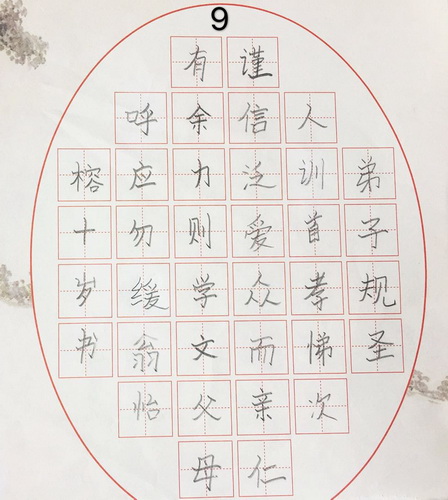 9
弟子规圣
人训首孝悌次
谨信泛爱众而亲仁
有余力则学文父母
呼应勿缓翁怡
榕十岁书